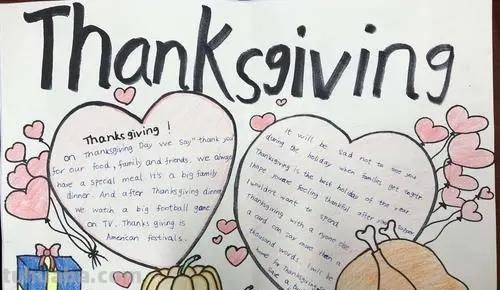 Thanksgiving
Thanksgiving !
on Thanksgiving Day we say "thank you
for our food, family and friends. we always
have a special meal. It's a big family
dinner. And after Thanksgiving dinner
we watch a big football game
on TV. Thanks giving is
American festivals.
It will be sad not to see you
during the holiday when families get
Thanksgiving is the best holiday of the year
I hope you're feeling thankful after your supper
I wouldn't want to spend
Thanksgiving with a
a card can say more than a
thousand words. I will be
home for Thanksgiving